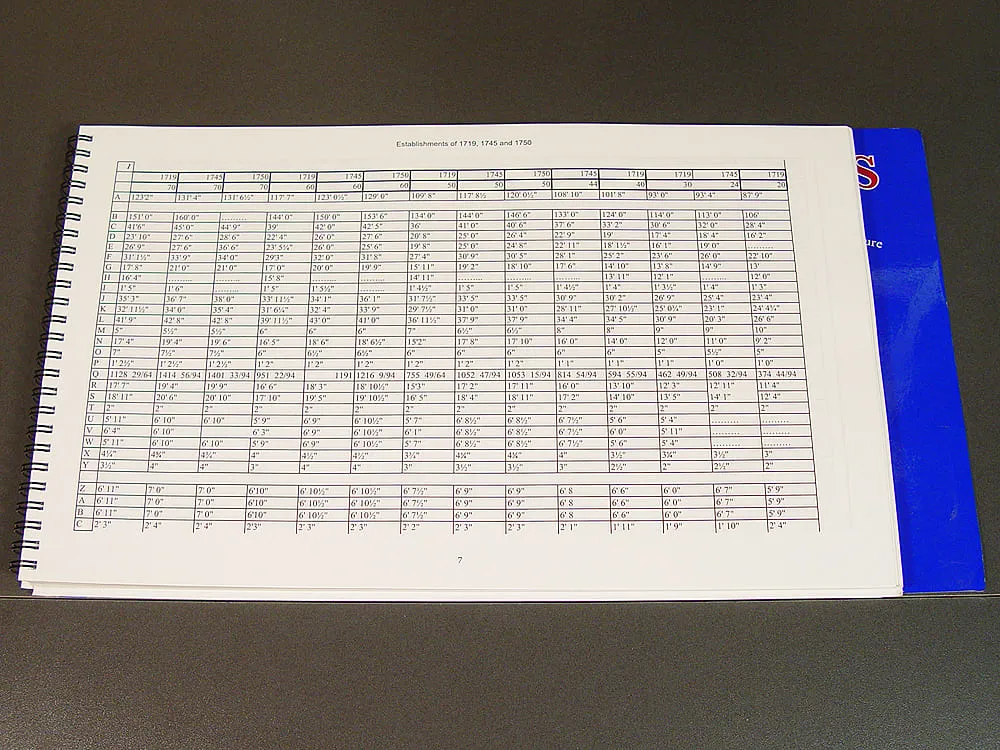 Establishments of 1719, 1745 and 1750
1
1719 1745 1750 1719 1745 1750 1719 1745 1750 1745 1719 1719 1745 1719
70 70 70 60 60 60 50 50 50 44 40 30 24 20
A 123'2" 131' 4" 131' 6½" 117' 7" 123' 0½" 129' 0" 109' 8" 117' 8½ 120' 0½" 108' 10" 101' 8" 93' 0" 93' 4" 87' 9"
B 151' 0" 160' 0" ......... 144' 0" 150' 0" 153' 6" 134' 0" 144' 0" 146' 6" 133' 0" 124' 0" 114' 0" 113' 0" 106'
C 41'6" 45' 0" 44' 9" 39' 42' 0" 42' 5" 36' 41' 0" 40' 6" 37' 6" 33' 2" 30' 6" 32' 0" 28' 4"
D 23' 10" 27' 6" 28' 6" 22' 4" 26' 0" 27' 6" 20' 8" 25' 0" 26' 4" 22' 9" 19' 17' 4" 18' 4" 16' 2"
E 26' 9" 27' 6" 36' 6" 23' 5¼" 26' 0" 25' 6" 19' 8" 25' 0" 24' 8" 22' 11" 18' 1½" 16' 1" 19' 0" .........
F 31' 1½" 33' 9" 34' 0" 29'3" 32' 0" 31' 8" 27' 4" 30' 9" 30' 5" 28' 1" 25' 2" 23' 6" 26' 0" 22' 10"
G 17' 8" 21' 0" 21' 0" 17' 0" 20' 0" 19' 9" 15' 11" 19' 2" 18' 10" 17' 6" 14' 10" 13' 8" 14' 9" 13'
H 16' 4" ......... ......... 15' 8" ......... ......... 14' 11" ......... ......... ......... 13' 11" 12' 1" ......... 12' 0"
I 1' 5" 1' 6" ......... 1' 5" 1' 5½" ......... 1' 4½" 1' 5" 1' 5" 1' 4½" 1' 4" 1' 3½" 1' 4" 1' 3"
J 35' 3" 36' 7" 38' 0" 33' 11½" 34' 1" 36' 1" 31' 7½" 33' 5" 33' 5" 30' 9" 30' 2" 26' 9" 25' 4" 23' 4"
K 32' 11½" 34' 0" 35' 4" 31' 6¼" 32' 4" 33' 9" 29' 7½" 31' 0" 31' 0" 28' 11" 27' 10½" 25' 0¼" 23' 1" 24' 4¼"
L 41' 9" 42' 8" 42' 8" 39' 11½" 43' 0" 41' 0" 36' 11½" 37' 9" 37' 9" 34' 4" 34' 5" 30' 9" 20' 3" 26' 6"
M 5" 5½" 5½" 6" 6" 6" 7" 6½" 6½" 8" 8" 9" 9" 10"
N 17' 4" 19' 4" 19' 6" 16' 5" 18' 6" 18' 6½" 15'2" 17' 8" 17' 10" 16' 0" 14' 0" 12' 0" 11' 0" 9' 2"
O 7" 7½" 7½" 6" 6½" 6½" 6" 6" 6" 6" 6" 5" 5½" 5"
P 1' 2½" 1' 2½" 1' 2½" 1' 2" 1' 2" 1' 2" 1' 2" 1' 2" 1' 2" 1' 2" 1' 1" 1' 1" 1' 0" 1' 0"
Q 1128 29/64 1414 56/94 1401 33/94 951 22/94 1191 1216 9/94 755 49/64 1052 47/94 1053 15/94 814 54/94 594 55/94 462 49/94 508 32/94 374 44/94
R 17' 7" 19' 4" 19' 9" 16' 6" 18' 3" 18' 10½" 15'3" 17' 2" 17' 11" 16' 0" 13' 10" 12' 3" 12' 11" 11' 4"
S 18' 11" 20' 6" 20' 10" 17' 10" 19' 5" 19' 10½" 16' 5" 18' 4" 18' 11" 17' 2" 14' 10" 13' 5" 14' 1" 12' 4"
T 2" 2" 2" 2" 2" 2" 2" 2" 2" 2" 2" 2" 2" 2"
U 5' 11" 6' 10" 6' 10" 5' 9" 6' 9" 6' 10½" 5' 7" 6' 8½" 6' 8½" 6' 7½" 5' 6" 5' 4" ......... .........
V 6' 4" 6' 10" 6' 3" 6' 9" 6' 10½" 6' 1" 6' 8½" 6' 8½" 6' 7½" 6' 0" 5' 11" ......... .........
W 5' 11" 6' 10" 6' 10" 5' 9" 6' 9" 6' 10½" 5' 7" 6' 8½" 6' 8½" 6' 7½" 5' 6" 5' 4" ......... .........
X 4¼" 4¾" 4¾" 4" 4½" 4½" 3¾" 4¼" 4¼" 4" 3½" 3¼" 3½" 3"
Y 3½" 4" 4" 3" 4" 4" 3" 3½" 3½" 3" 2½" 2" 2½" 2"
Z 6' 11" 7' 0" 7' 0" 6'10" 6' 10½" 6' 10½" 6' 7½" 6' 9" 6' 9" 6' 8 6' 6" 6' 0" 6' 7" 5' 9"
A 6' 11" 7' 0" 7' 0" 6'10" 6' 10½" 6' 10½" 6' 7½" 6' 9" 6' 9" 6' 8 6' 6" 6' 0" 6' 7" 5' 9"
B 6' 11" 7' 0" 7' 0" 6'10" 6' 10½" 6' 10½" 6' 7½" 6' 9" 6' 9" 6' 8 6' 6" 6' 0" 6' 7" 5' 9"
C 2' 3" 2' 4" 2' 4" 2'3" 2' 3" 2' 3" 2' 2" 2' 3" 2' 3" 2' 1" 1' 11" 1' 9" 1' 10" 2' 4"
7
S
ure